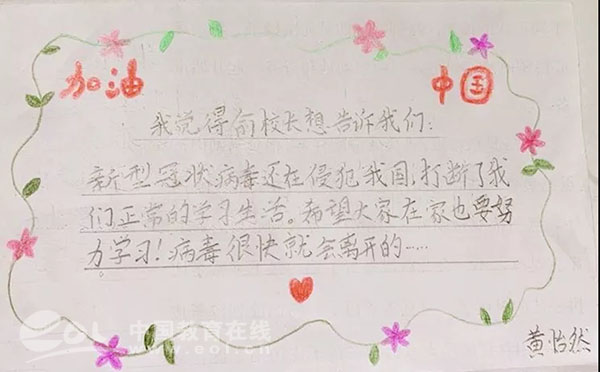 加油 中国
我觉得俞校长想告诉我们:
新型冠状病毒还在侵犯我国,打断了我
们正常的学习生活。希望大家在家也要努
力学习!病毒很快就会离开的……
黄怡然
eol 中国教育在线
www.eol.cn